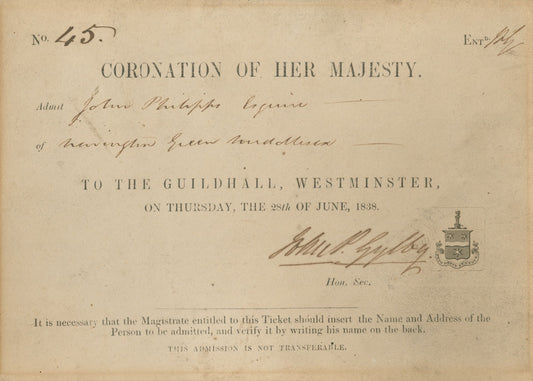 No. 45.
Entd.
CORONATION OF HER MAJESTY.
Admit John Philipps Esquire
of Newington Green Middlesex
TO THE GUILDHALL, WESTMINSTER,
ON THURSDAY, THE 28th OF JUNE, 1838.
John P. Gylby
Hon. Sec.
It is necessary that the Magistrate entitled to this Ticket should insert the Name and Address of the
Person to be admitted, and verify it by writing his name on the back.
THIS ADMISSION IS NOT TRANSFERABLE.